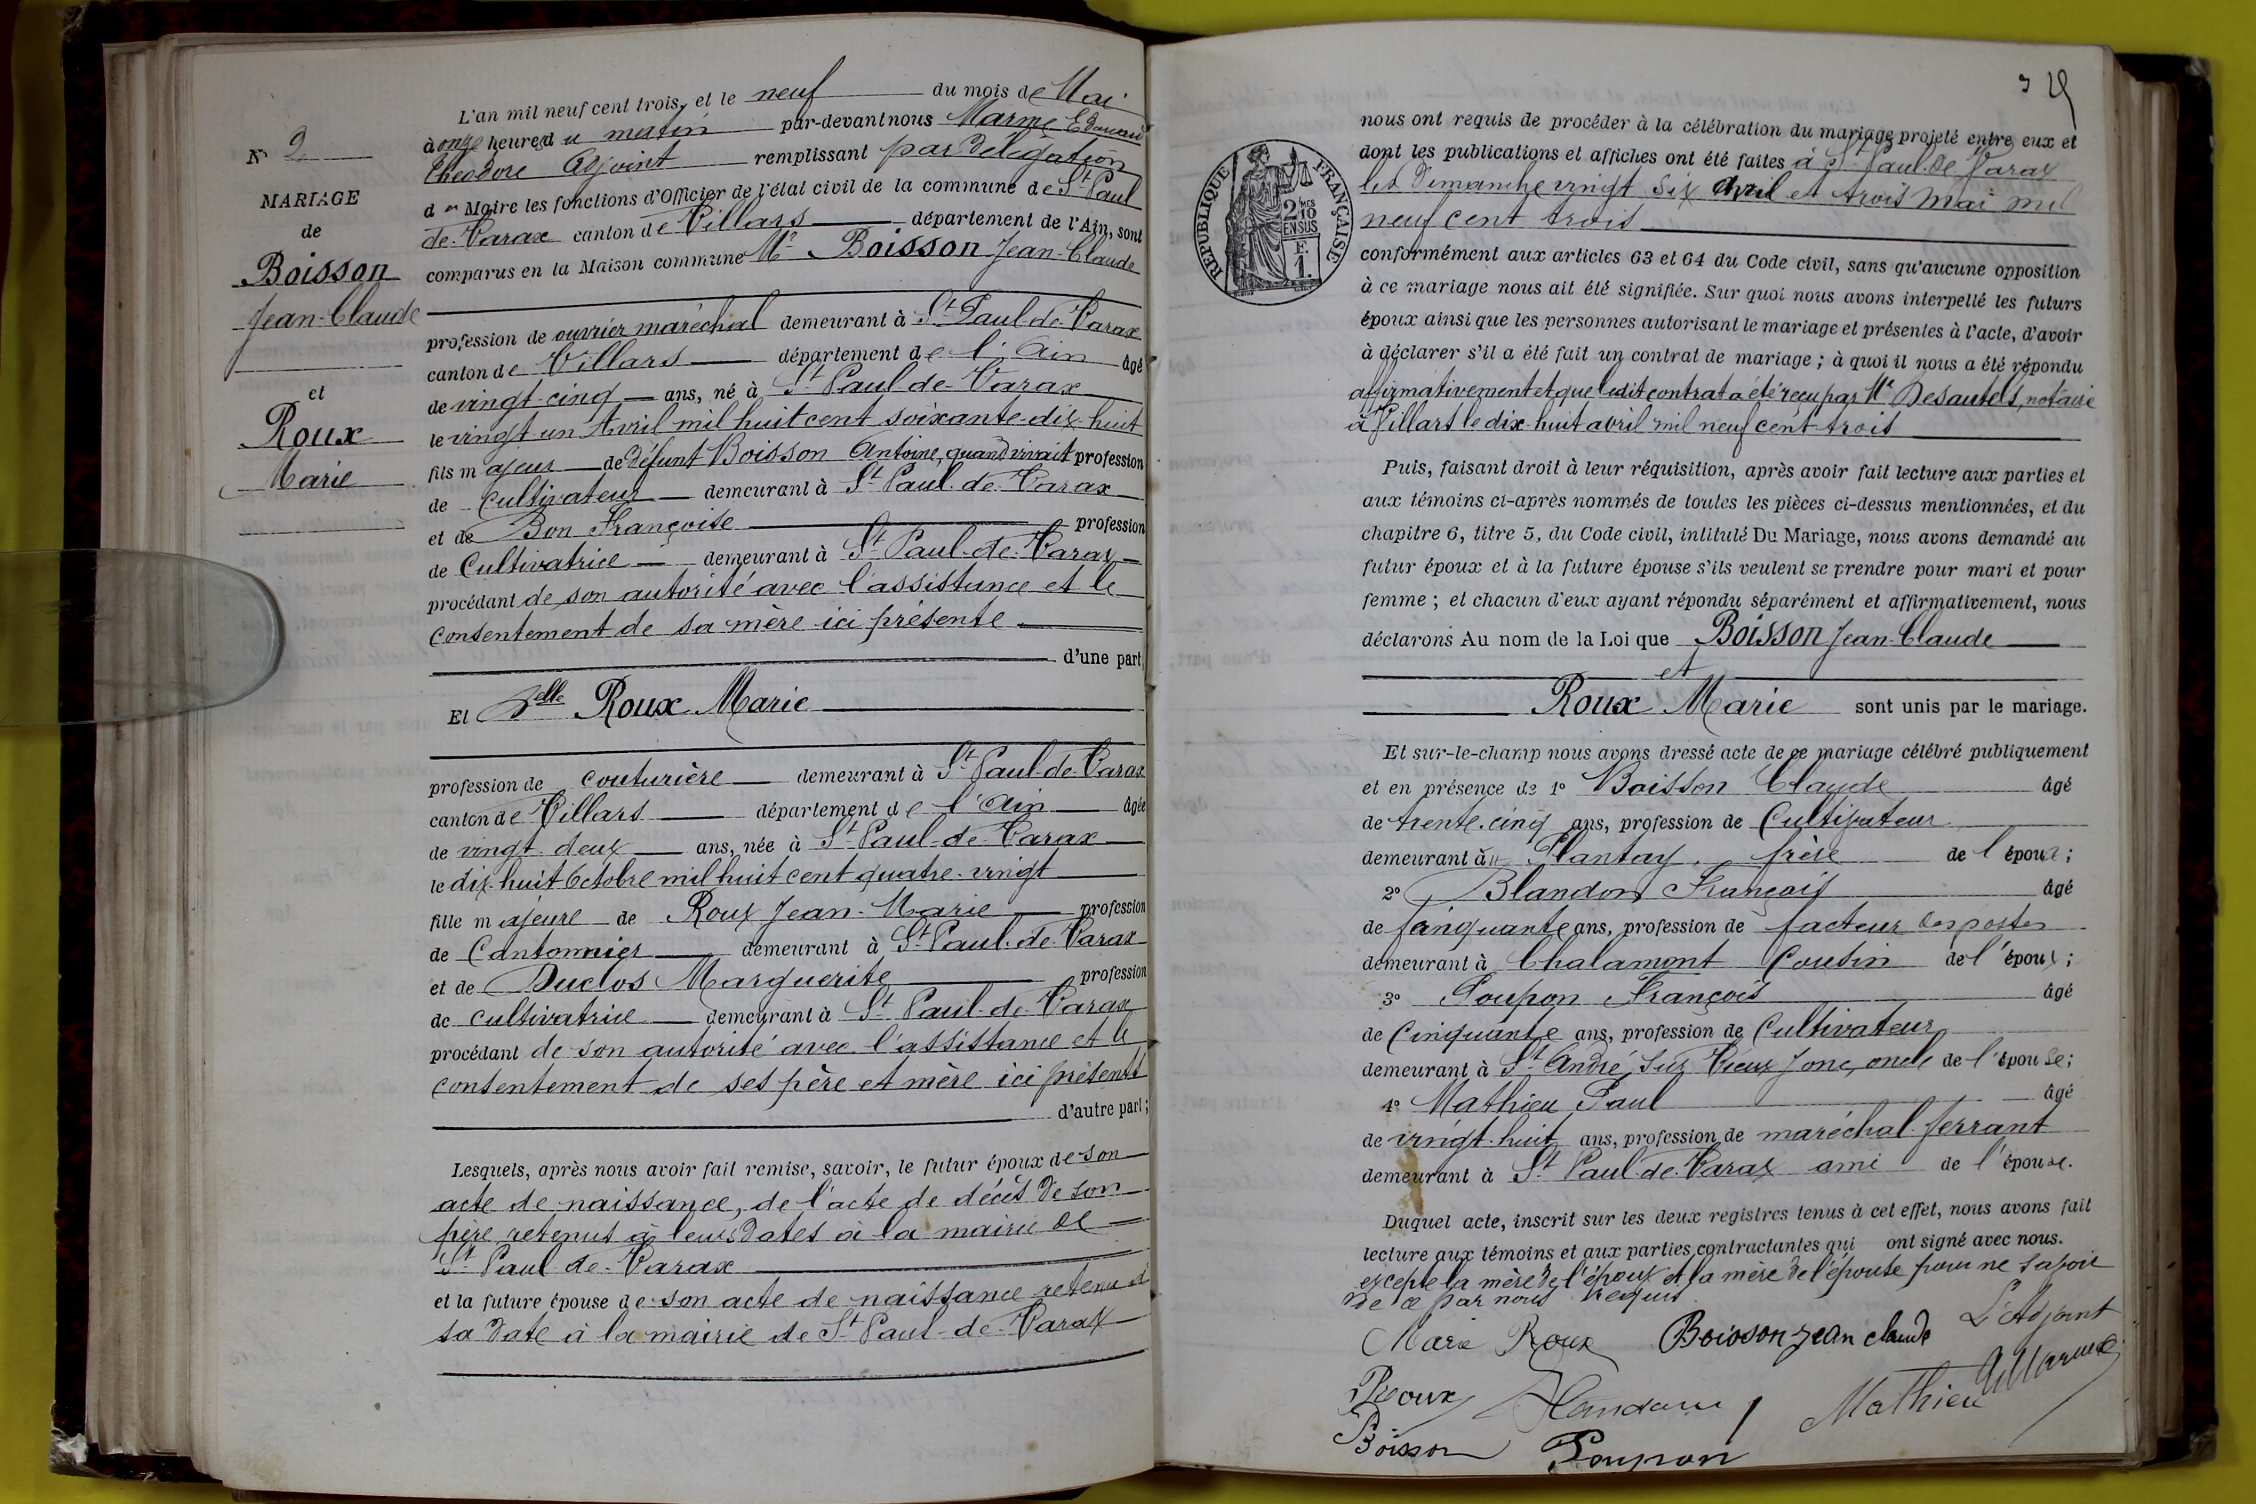 N° 9
MARIAGE
de
Boisson
Jean-Claude
et
Roux
Marie
L'an mil neuf cent trois, et le neuf du mois de Mai
à onze heures du matin par-devant nous Marme Edouard
Théodore Adjoint remplissant par délégation
du Maire les fonctions d'Officier de l'état civil de la commune de St Paul
de-Varax canton de Villars département de l'Ain, sont
comparus en la Maison commune Mr Boisson Jean-Claude
profession de ouvrier maréchal demeurant à St Paul-de-Varax
canton de Villars département de l'Ain âgé
de vingt-cinq ans, né à St Paul-de-Varax
le vingt un Avril mil huit cent soixante-dix-huit
fils majeur de défunt Boisson Antoine, quand vivait profession
de Cultivateur demeurant à St Paul-de-Varax
et de Bon Françoise profession
de Cultivatrice demeurant à St Paul-de-Varax
procédant de son autorité avec l'assistance et le
consentement de sa mère ici présente
d'une part
Et Delle Roux Marie
profession de couturière demeurant à St Paul-de-Varax
canton de Villars département de l'Ain âgée
de vingt-deux ans, née à St Paul-de-Varax
le dix-huit Octobre mil huit cent quatre-vingt
fille majeure de Roux Jean-Marie profession
de Cantonnier demeurant à St Paul-de-Varax
et de Duclos Marguerite profession
de cultivatrice demeurant à St Paul-de-Varax
procédant de son autorité avec l'assistance et le
consentement de ses père et mère ici présents
d'autre part;
Lesquels, après nous avoir fait remise, savoir, le futur époux de son
acte de naissance, de l'acte de décès de son
père retenus à leurs dates à la mairie de
St Paul-de-Varax
et la future épouse de son acte de naissance retenu à
sa date à la mairie de St Paul-de-Varax
RÉPUBLIQUE FRANÇAISE
2 MES
10
EN SUS
F.
1.
nous ont requis de procéder à la célébration du mariage projeté entre eux et
dont les publications et affiches ont été faites à St Paul-de-Varax
les dimanche vingt six avril et trois mai mil
neuf cent trois
conformément aux articles 63 et 64 du Code civil, sans qu'aucune opposition
à ce mariage nous ait été signifiée. Sur quoi nous avons interpellé les futurs
époux ainsi que les personnes autorisant le mariage et présentes à l'acte, d'avoir
à déclarer s'il a été fait un contrat de mariage; à quoi il nous a été répondu
affirmativement et que ledit contrat a été reçu par Me Desautels, notaire
à Villars le dix-huit avril mil neuf cent trois
Puis, faisant droit à leur réquisition, après avoir fait lecture aux parties et
aux témoins ci-après nommés de toutes les pièces ci-dessus mentionnées, et du
chapitre 6, titre 5, du Code civil, intitulé Du Mariage, nous avons demandé au
futur époux et à la future épouse s'ils veulent se prendre pour mari et pour
femme; et chacun d'eux ayant répondu séparément et affirmativement, nous
déclarons Au nom de la Loi que Boisson Jean-Claude
et
Roux Marie sont unis par le mariage.
Et sur-le-champ nous avons dressé acte de ce mariage célébré publiquement
et en présence de 1° Boisson Claude âgé
de trente-cinq ans, profession de Cultivateur
demeurant à Plantay, frère de l'époux;
2° Blandon François âgé
de cinquante ans, profession de facteur des postes
demeurant à Chalamont Cousin de l'époux;
3° Poupon François âgé
de Cinquante ans, profession de Cultivateur
demeurant à St André sur Vieux Jonc, oncle de l'épouse;
4° Mathieu Paul âgé
de vingt-huit ans, profession de maréchal ferrant
demeurant à St Paul-de-Varax ami de l'épouse.
Duquel acte, inscrit sur les deux registres tenus à cet effet, nous avons fait
lecture aux témoins et aux parties contractantes qui ont signé avec nous.
excepté la mère de l'époux et la mère de l'épouse pour ne savoir
de ce par nous requis
Marie Roux Boisson Jean claude L'Adjoint
Roux Blandon Mathieu
Boisson Poupon